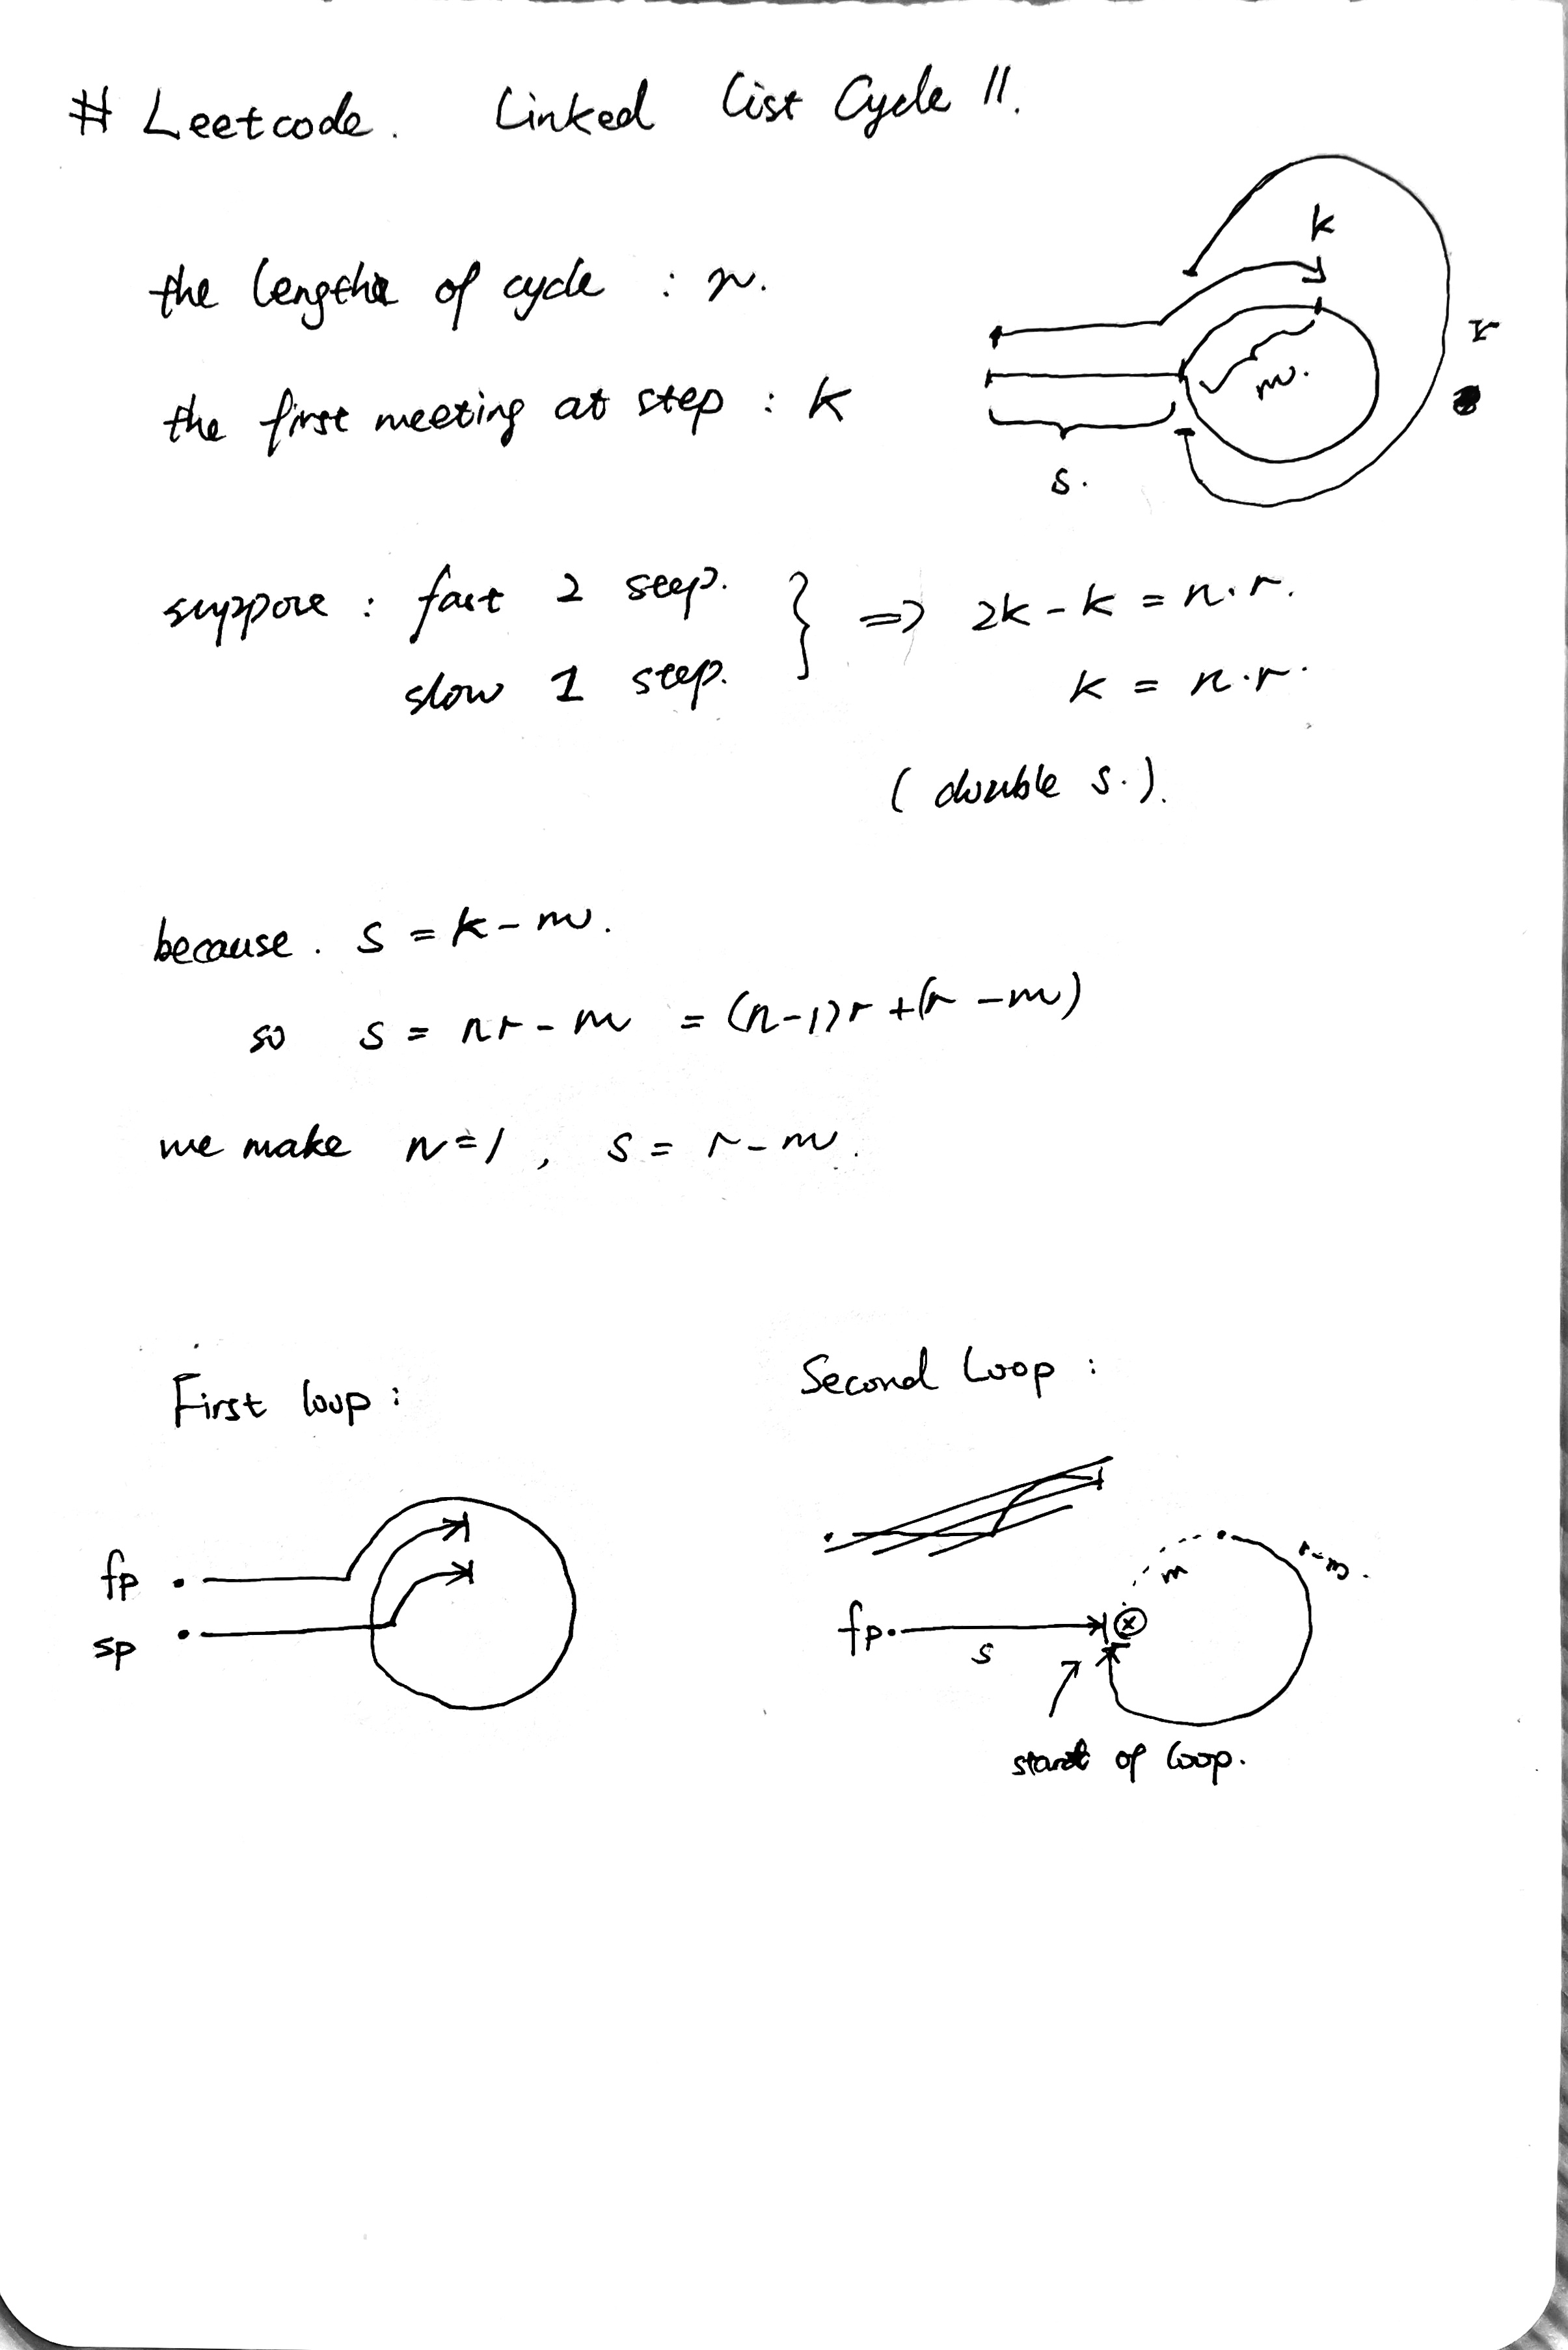 # Leetcode. Linked List Cycle II.
k
the length of cycle : n.
r
m.
the first meeting at step : k
s.
suppose : fast 2 step. } => 2k - k = n·r.
slow 1 step. k = n·r.
(double s.).
because. s = k - m.
so s = nr - m = (n-1)r + (r - m)
we make n=1, s = r - m.
First loop :
Second Loop :
fp
sp
m
r-m.
fp
s
start of loop.